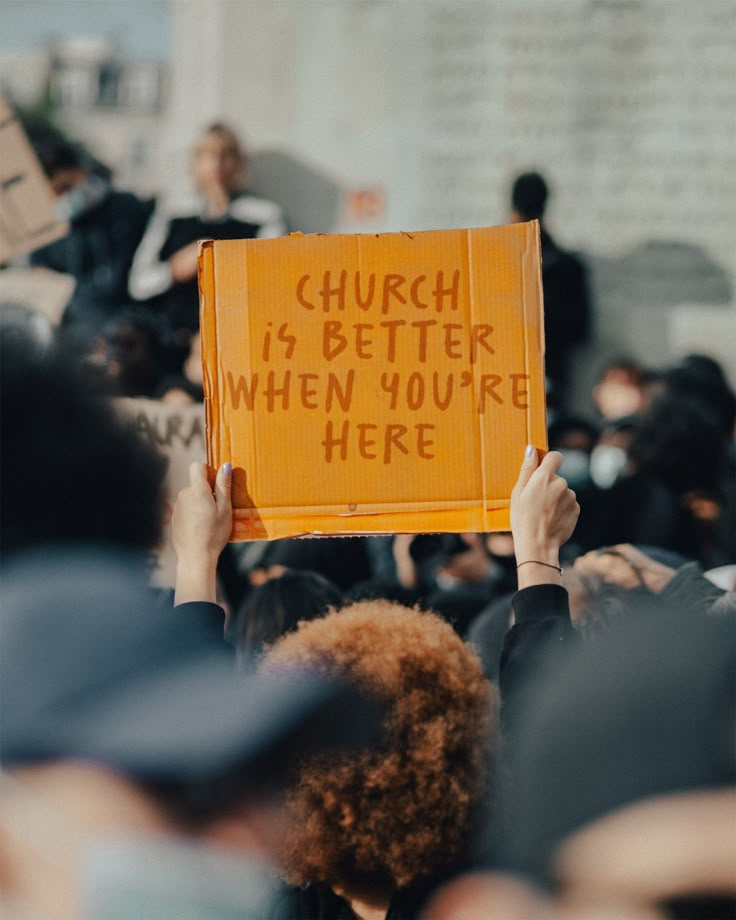 CHURCH
is BETTER
WHEN YOU'RE
HERE
ARA